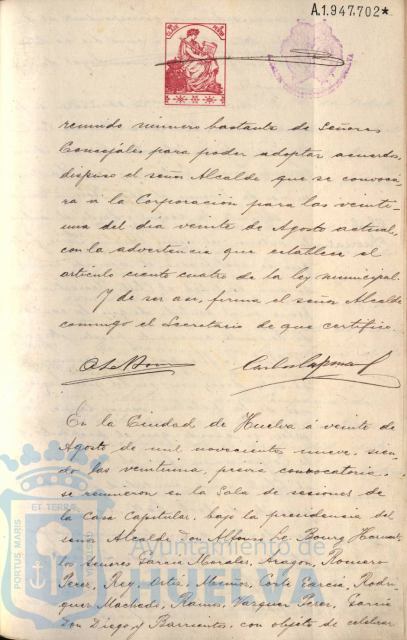 A.1.947.702*
reunido número bastante de Señores
Concejales para poder adoptar acuerdos,
dispuso el señor Alcalde que se convocá-
ra á la Corporación para las veinti-
una del dia veinte de Agosto actual,
con la advertencia que establece el
artículo ciento cuatro de la ley municipal.
Y de ser asi, firma el señor Alcalde
conmigo el Secretario de que certifico.
En la Ciudad de Huelva á veinte de
Agosto de mil novecientos nueve, sien-
do las veintiuna, previa convocatoria,
se reunieron en la Sala de sesiones de
la Casa Capitular, bajo la presidencia del
señor Alcalde Don Alfonso Le Bourg
los Señores Garcia Morales, Aragon, Romero
Perez, Rey, Ortiz, Muñoz, Garcia, Rodri-
guez Machado, Ramos, Vazquez Perez, Garcia
Don Diego y Barrientos, con objeto de celebrar
PORTUS MARIS
ET TERRAE
CUSTODIA
Ayuntamiento de
HUELVA